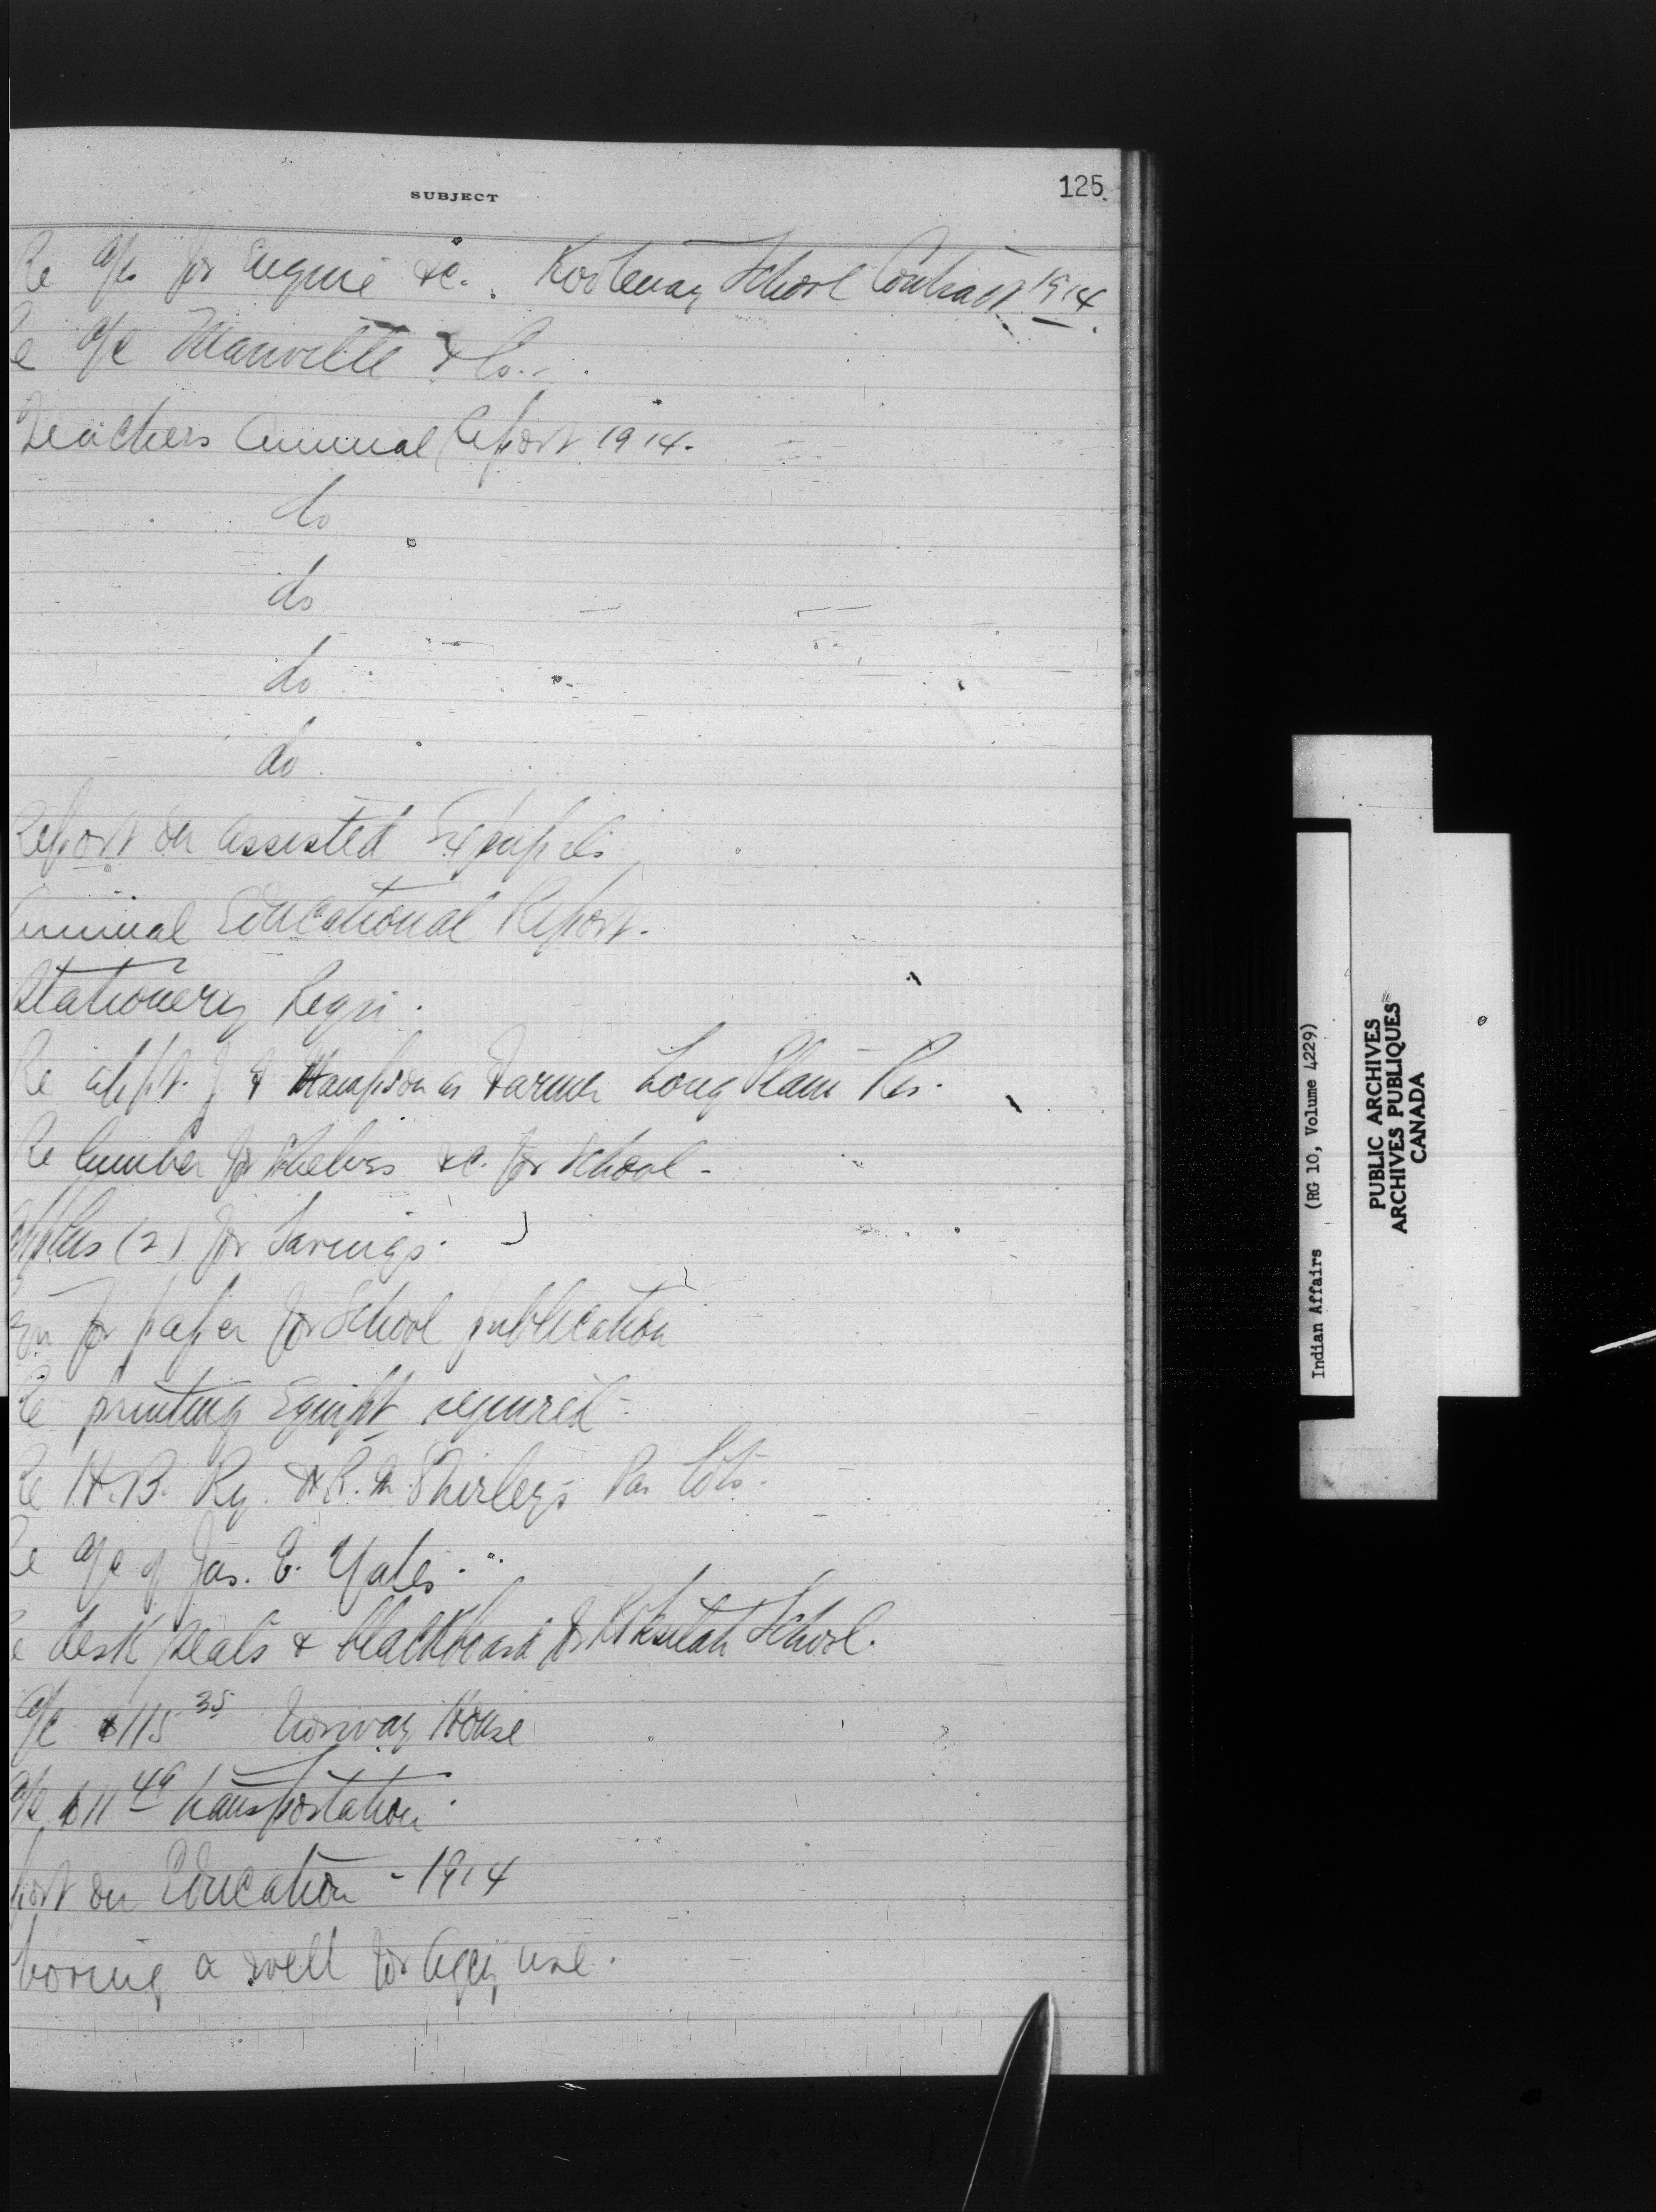 125.
SUBJECT
Re a/cs for Engine &c. Kootenay School Contract 1914
a/c Manville & Co.
Teachers Annual Report 1914.
do
do
do
do
Report on assisted Expupils
Annual Educational Report.
Stationery Reqn.
Re appt. J as Farmer Long Plain Res.
Re lumber for shelves &c. for School -
(2) for Savings.
for paper for School publication
Re printing Equipt required -
Re H.B. Ry. & R. Shirley's Par Lots -
Re a/c of Jas. E. Yates.
desk seats & blackboard for Koksilah School.
a/c $115 35 Norway House
a/c $11 49 transportation
port on Education - 1914
boring a well for Agcy use.
Indian Affairs (RG 10, Volume 4229)
PUBLIC ARCHIVES
ARCHIVES PUBLIQUES
CANADA